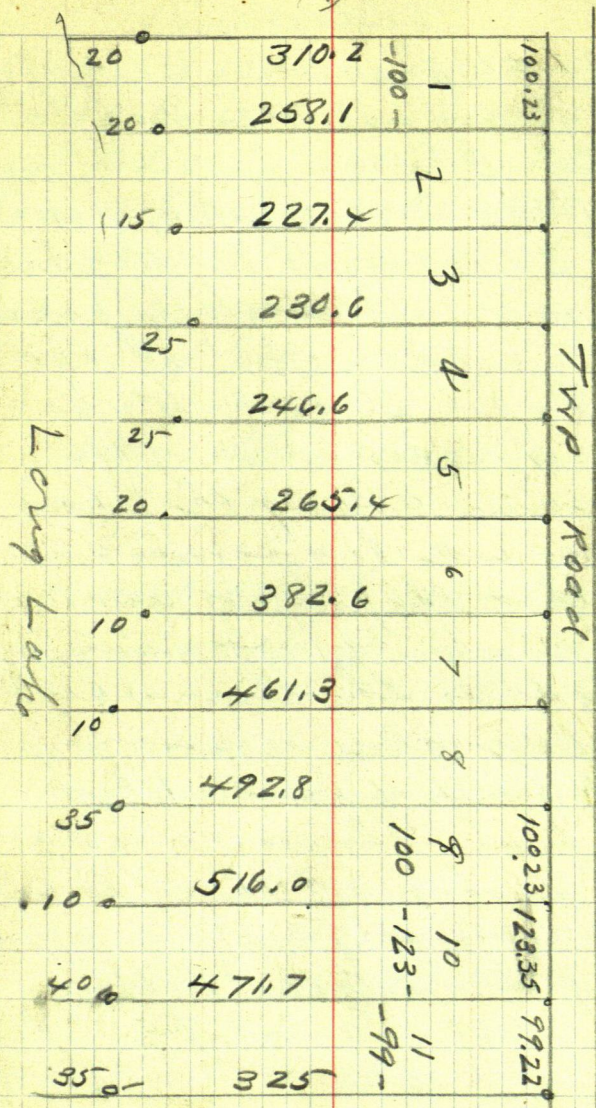 20 310.2 100.23
-100- 1
20 258.1
2
15 227.4
3
25 230.6
4
25 246.6
5
20 265.4
6
10 382.6
7
10 461.3
8
35 492.8
100 9 100.23
10 516.0
-123- 10 123.35
40 471.7
-99- 11 99.22
35 325
Twp Road
Long Lake